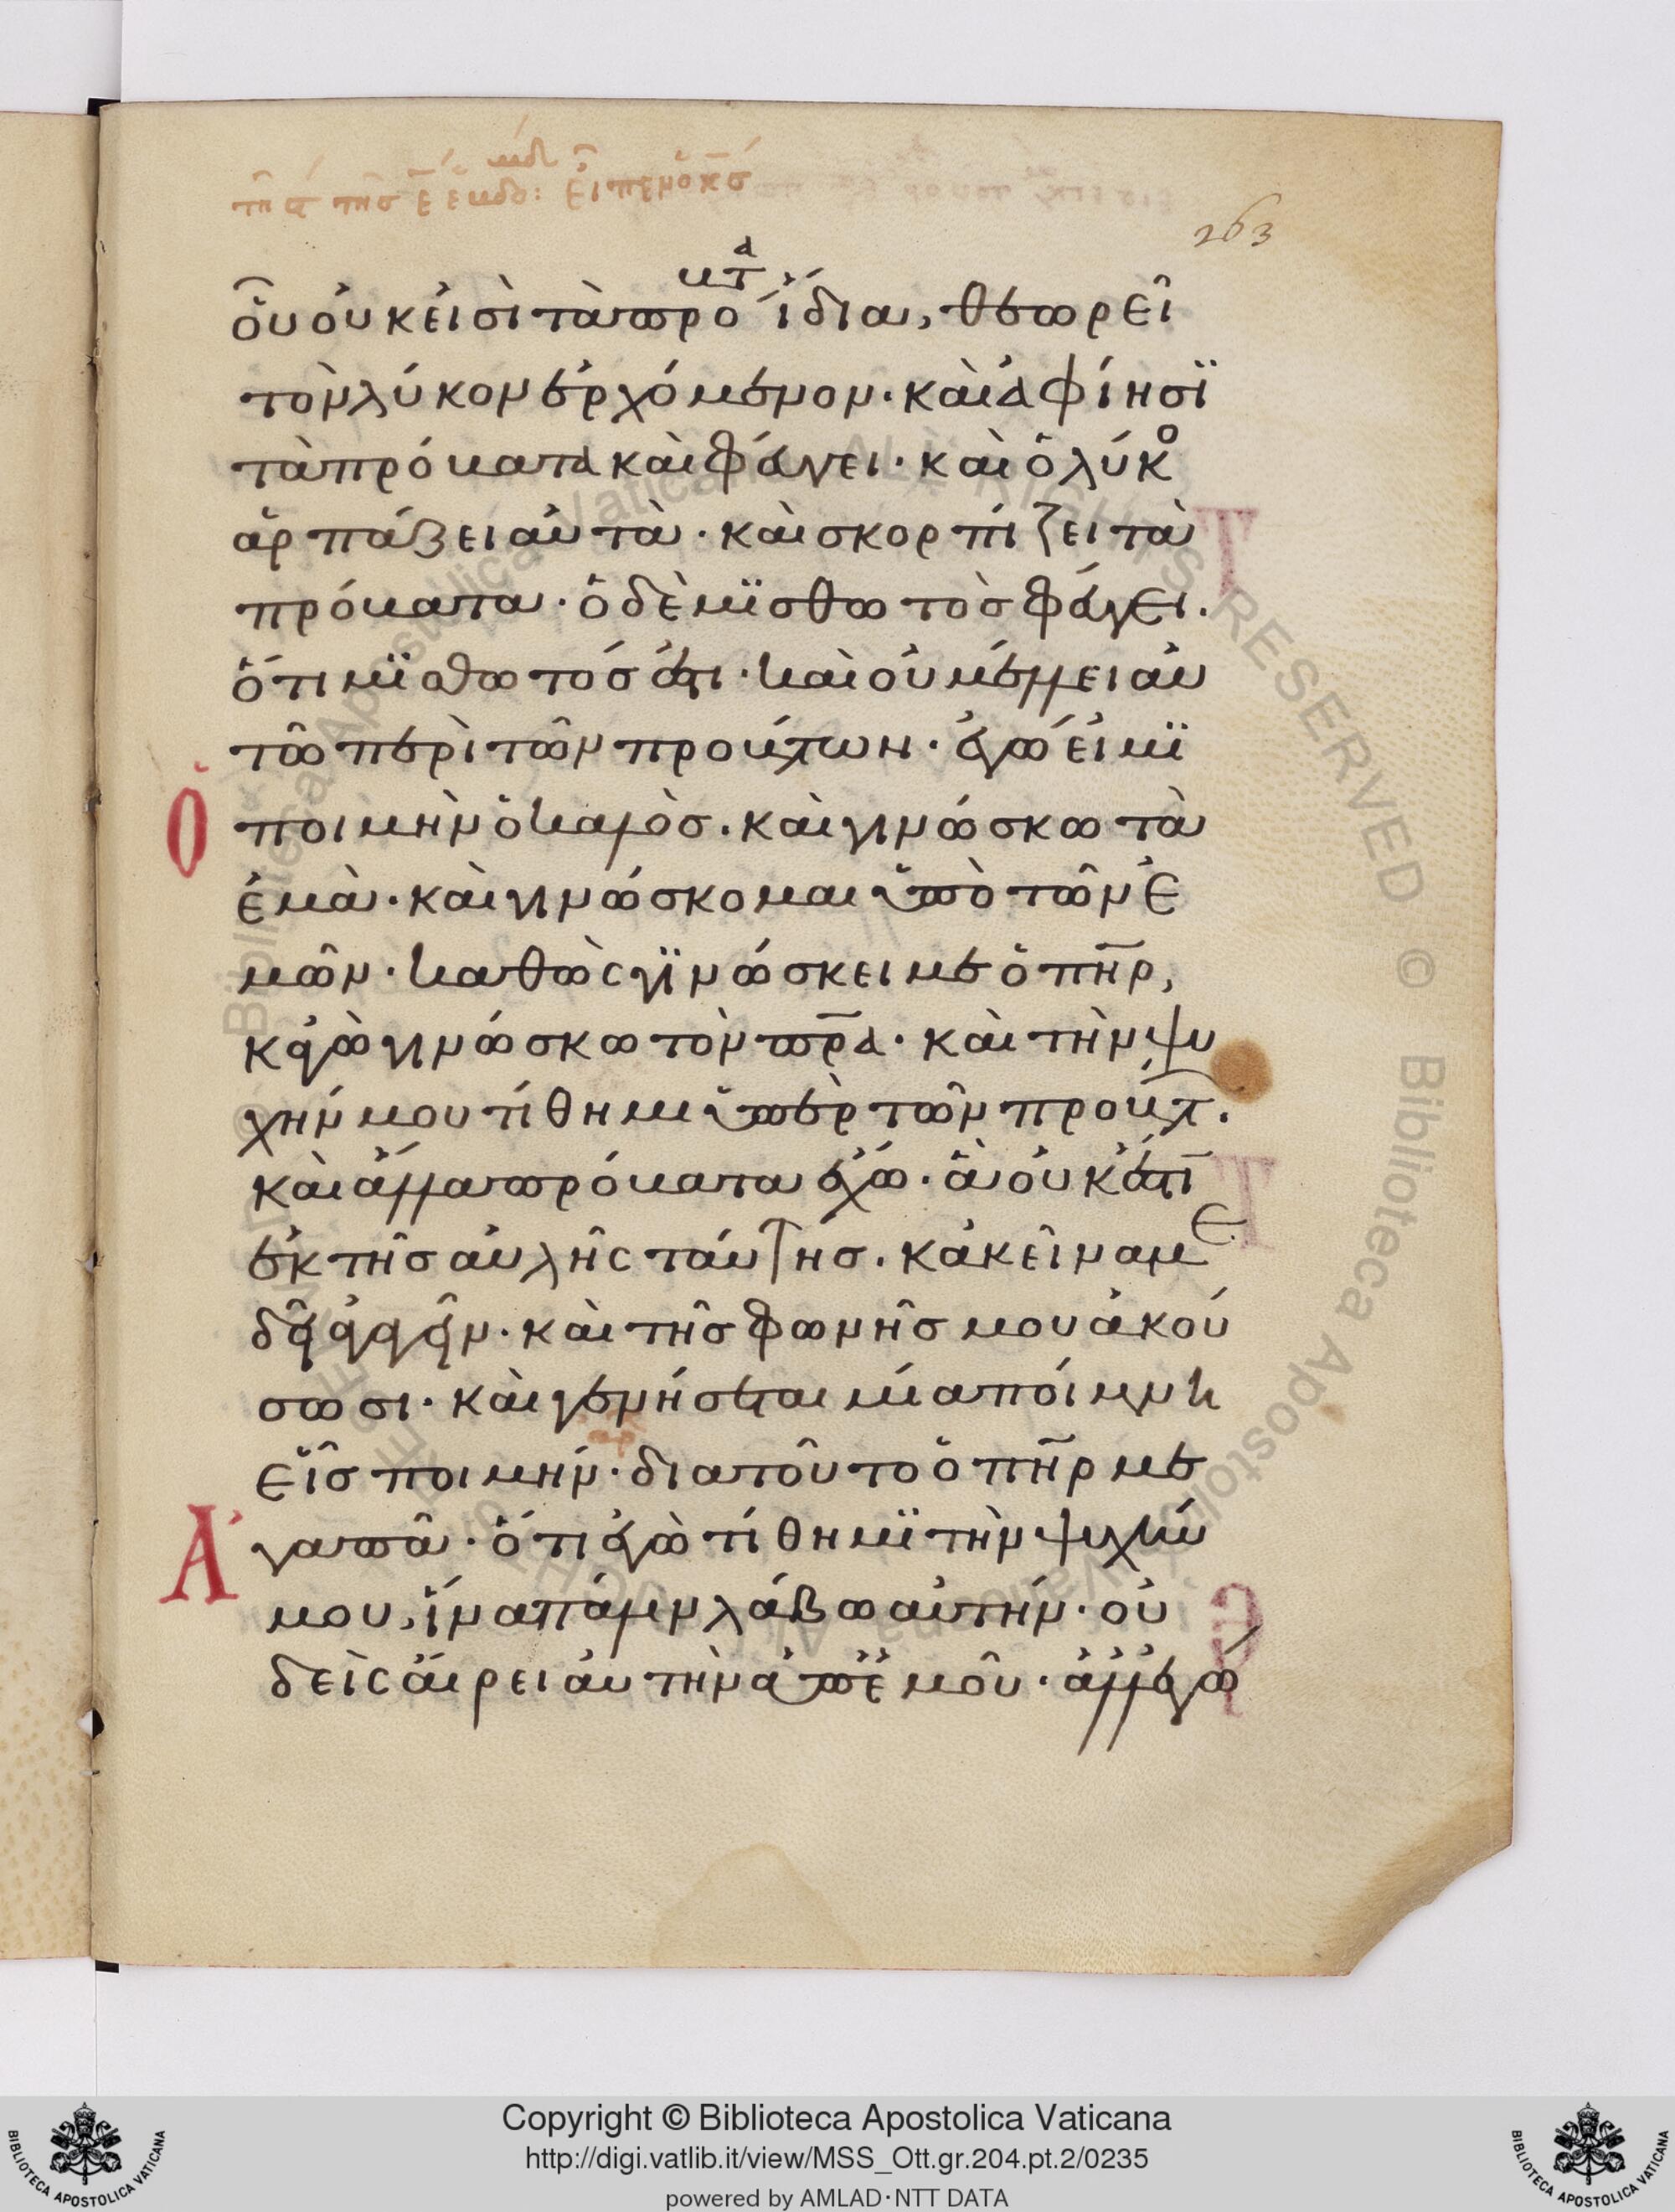 263
οὗ οὐκ εἰσὶ τὰ πρόματα ἴδια, θεωρεῖ
τὸν λύκον ἐρχόμενον· καὶ ἀφίησϊ
τὰ πρόματα καὶ φεύγει· καὶ ὁ λύκο
ἁρπάζει αὐτὰ· καὶ σκορπίζει τὰ
πρόματα· ὁ δὲ μϊσθωτὸσ φεύγει.
ὅτι μϊσθωτόσ ἐστι· καὶ οὐ μέλλει αὐ
τῶ περὶ τῶν προμάτων· ἐγώ εἰμϊ
Ὁ ποιμὴν ὁ καλὸσ· καὶ γινώσκω τὰ
ἐμὰ· καὶ γινώσκομαι ὑπὸ τῶν ἐ
μῶν· καθὼς γϊνώσκει με ὁ πη̅ρ,
κἀγὼ γινώσκω τὸν πρ̅α· καὶ τὴν ψυ
χήν μου τίθημι ὑπὲρ τῶν προμάτ.
καὶ ἄλλα πρόματα ἔχω· ἃ οὐκ ἔστι
ἐκ τῆσ αὐλῆς ταύτησ· κἀκεῖνα με
δεῖ ἀγαγεῖν· καὶ τῆσ φωνῆσ μου ἀκού
σωσι· καὶ γενήσεται μία ποίμνη
εἷσ ποιμήν· διατοῦτο ὁ πη̅ρ με
Ἀγαπᾶ· ὅτι ἐγὼ τίθημϊ τὴν ψυχήν
μου, ἵνα πάλιν λάβω αὐτήν· οὐ
δεὶς αἴρει αὐτὴν ἀπ᾽ ἐμοῦ· ἀλλ᾽ ἐγὼ
Copyright © Biblioteca Apostolica Vaticana
http://digi.vatlib.it/view/MSS_Ott.gr.204.pt.2/0235
powered by AMLAD·NTT DATA
BIBLIOTECA APOSTOLICA VATICANA
BIBLIOTECA APOSTOLICA VATICANA